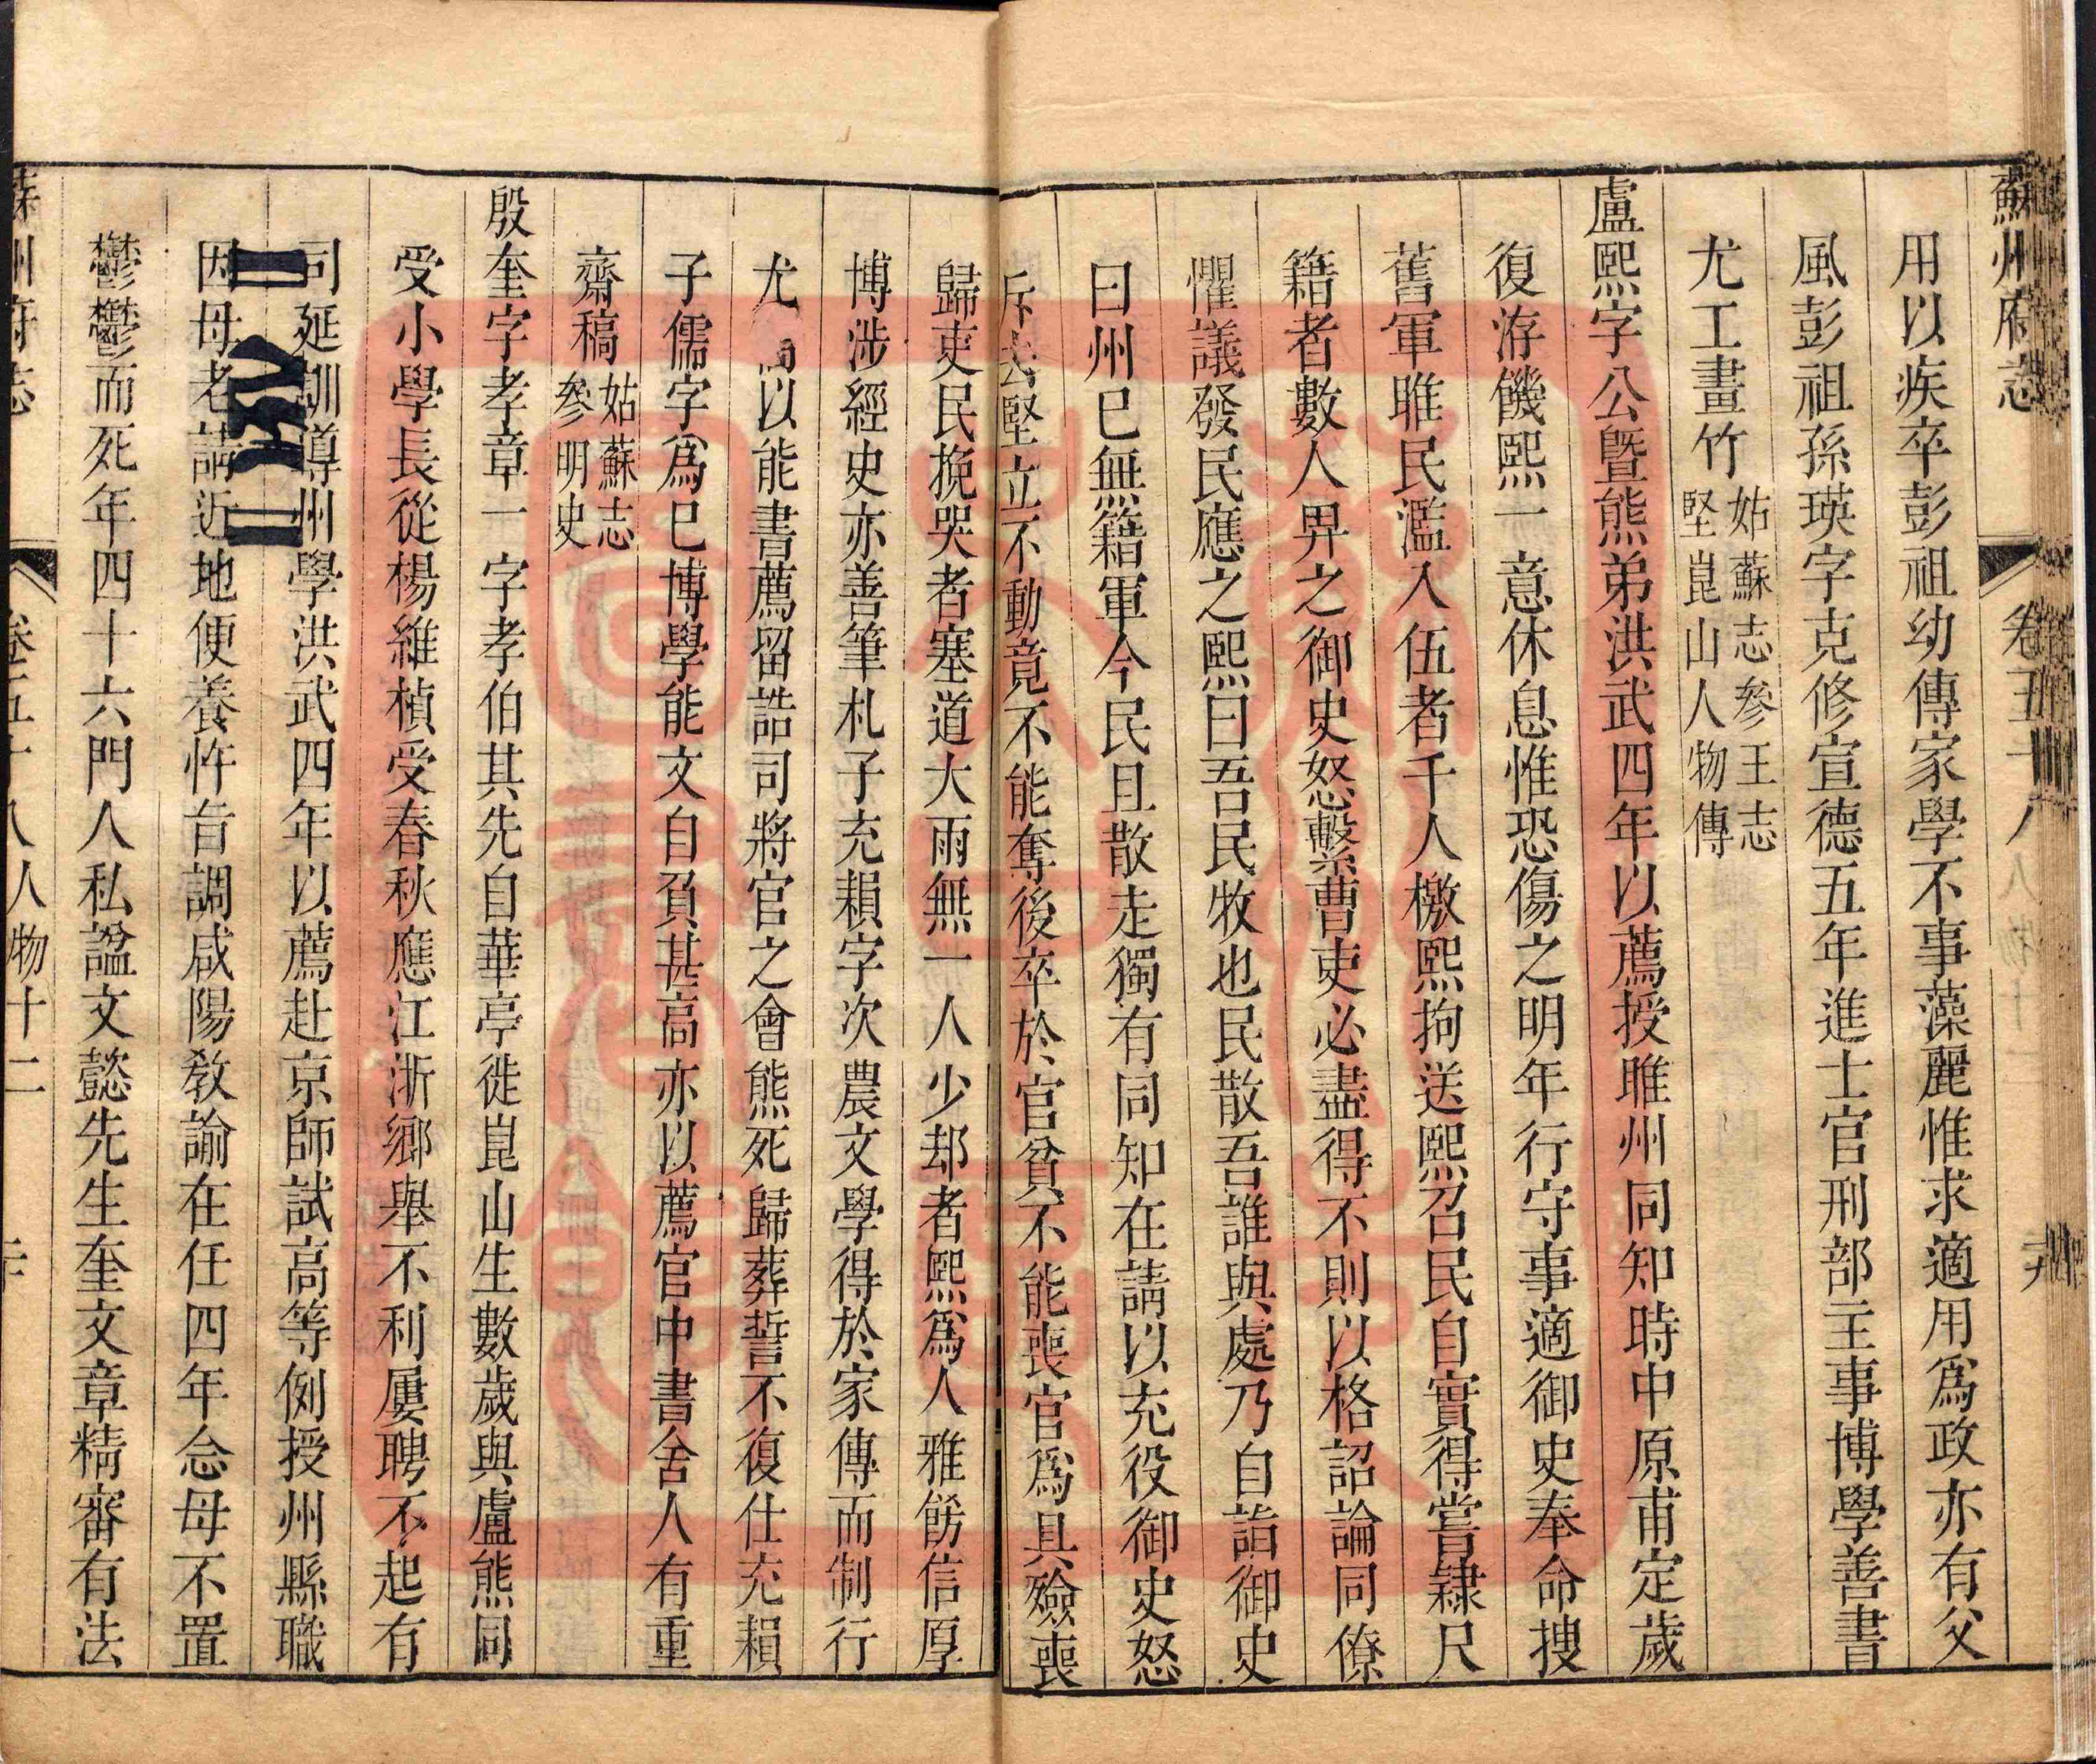 蘇州府志 卷五十八
用以疾卒彭祖幼傳家學不事藻麗惟求適用爲政亦有父
風彭祖孫瑛字克修宣德五年進士官刑部主事博學善書
尤工畫竹姑蘇志參王志
堅崑山人物傳
盧熙字公曁熊弟洪武四年以薦授睢州同知時中原甫定歲
復洊饑熙一意休息惟恐傷之明年行守事適御史奉命搜
舊軍睢民濫入伍者千人檄熙拘送熙召民自實得嘗隸尺
籍者數人畀之御史怒繫曹吏必盡得不則以格詔論同僚
懼議發民應之熙曰吾民牧也民散吾誰與處乃自詣御史
曰州已無籍軍今民且散走獨有同知在請以充役御史怒
斥去堅立不動竟不能奪後卒於官貧不能喪官爲具殮喪
歸吏民挽哭者塞道大雨無一人少却者熙爲人雅飭信厚
博涉經史亦善筆札子充頛字次農文學得於家傳而制行
尤以能書薦留誥司將官之會熊死歸葬誓不復仕充頛
子儒字爲已博學能文自負甚高亦以薦官中書舍人有重
齋稿姑蘇志
參明史
殷奎字孝章一字孝伯其先自華亭徙崑山生數歲與盧熊同
受小學長從楊維楨受春秋應江浙鄉舉不利屢聘不起有
司延訓導州學洪武四年以薦赴京師試高等例授州縣職
因母老請近地便養忤旨調咸陽敎諭在任四年念母不置
鬱鬱而死年四十六門人私諡文懿先生奎文章精審有法
蘇州府志 卷五十八人物十二